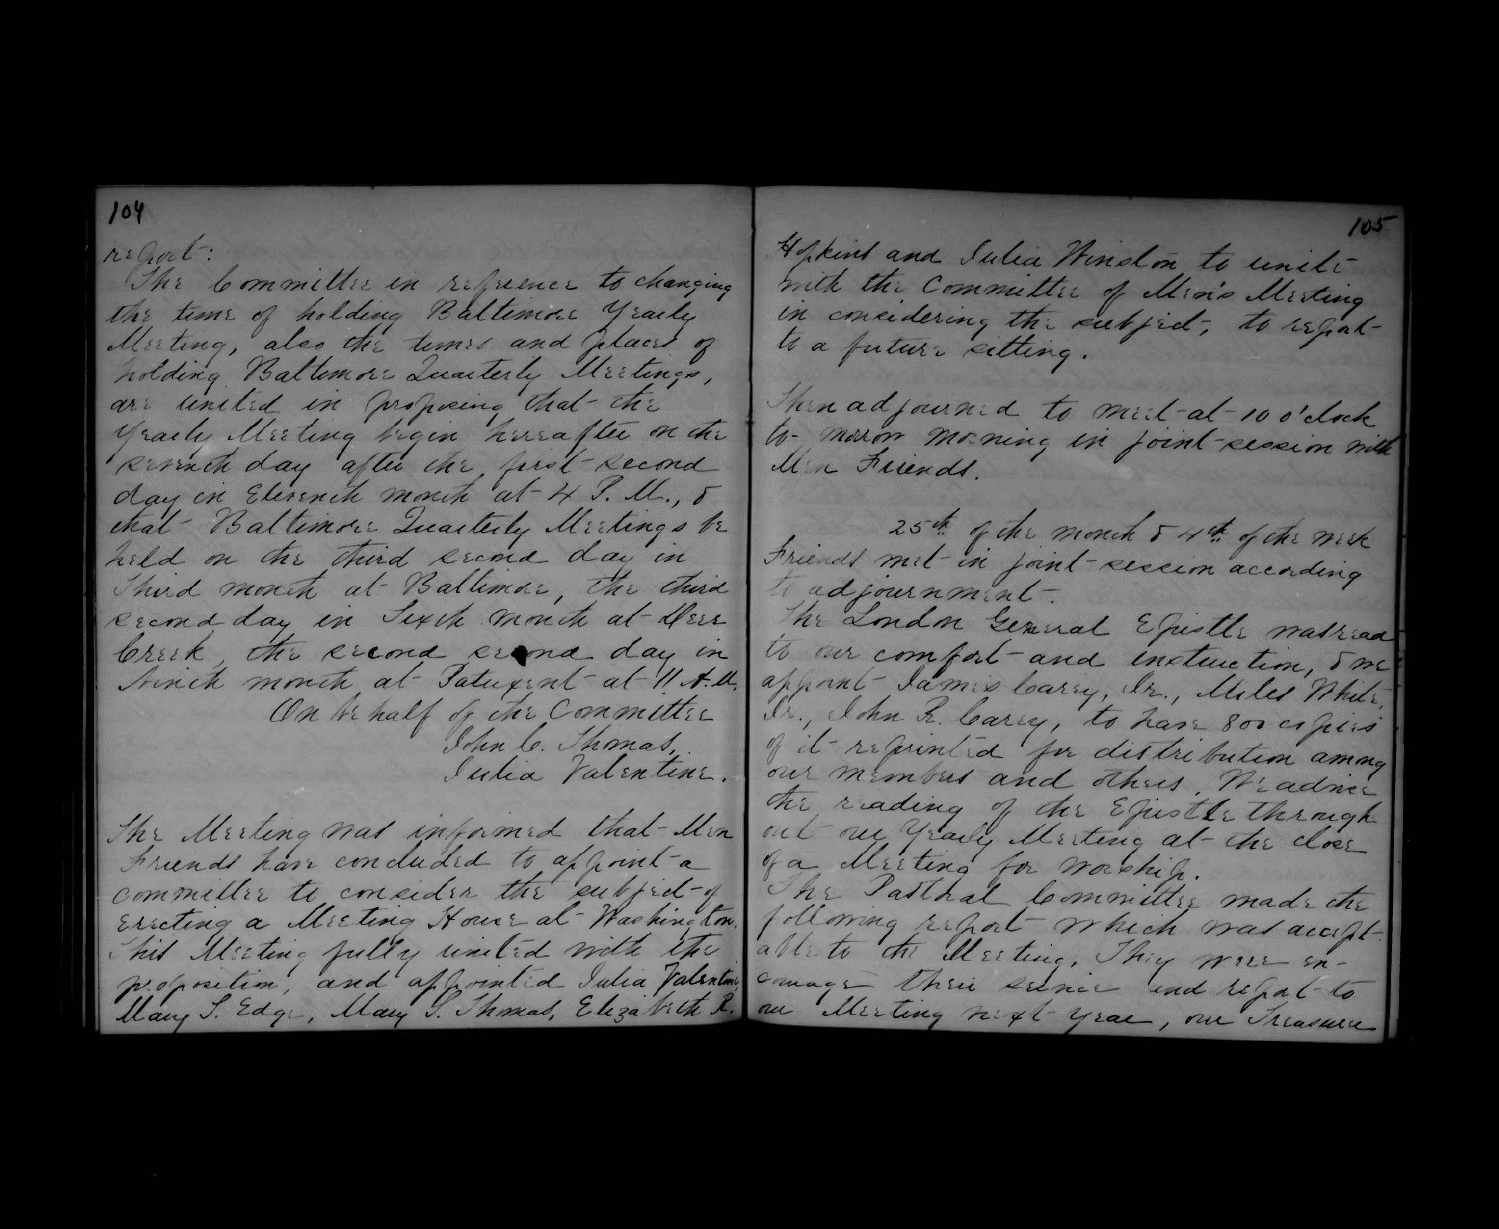 104
report:
The Committee in reference to changing
the time of holding Baltimore Yearly
Meeting, also the times and places of
holding Baltimore Quarterly Meetings,
are united in proposing that the
Yearly Meeting begin hereafter on the
seventh day after the first second
day in Eleventh month at 4 P. M., &
that Baltimore Quarterly Meetings be
held on the third second day in
Third month at Baltimore, the third
second day in Sixth month at Deer
Creek, the second second day in
Ninth month at Patuxent at 11 A.M.
On behalf of the Committee
John C. Thomas,
Julia Valentine.
The Meeting was informed that Men
Friends have concluded to appoint a
committee to consider the subject of
erecting a Meeting House at Washington.
This Meeting fully united with the
proposition, and appointed Julia Valentine,
Mary S. Edge, Mary S. Thomas, Elizabeth R.
105
Hopkins and Julia Winston to unite
with the Committee of Men's Meeting
in considering the subject, to report
to a future sitting.
Then adjourned to meet at 10 o'clock
to-morrow morning in joint session with
Men Friends.
25th of the month & 4th of the week
Friends met in joint session according
to adjournment.
The London General Epistle was read
to our comfort and instruction, & we
appoint James Carey, Jr., Miles White,
Jr., John R. Carey, to have 800 copies
of it reprinted for distribution among
our members and others. We advise
the reading of the Epistle through
out our Yearly Meeting at the close
of a Meeting for worship.
The Pastoral Committee made the
following report which was accept-
able to the Meeting. They were en-
courage their service and report to
our Meeting next year, our Treasurer